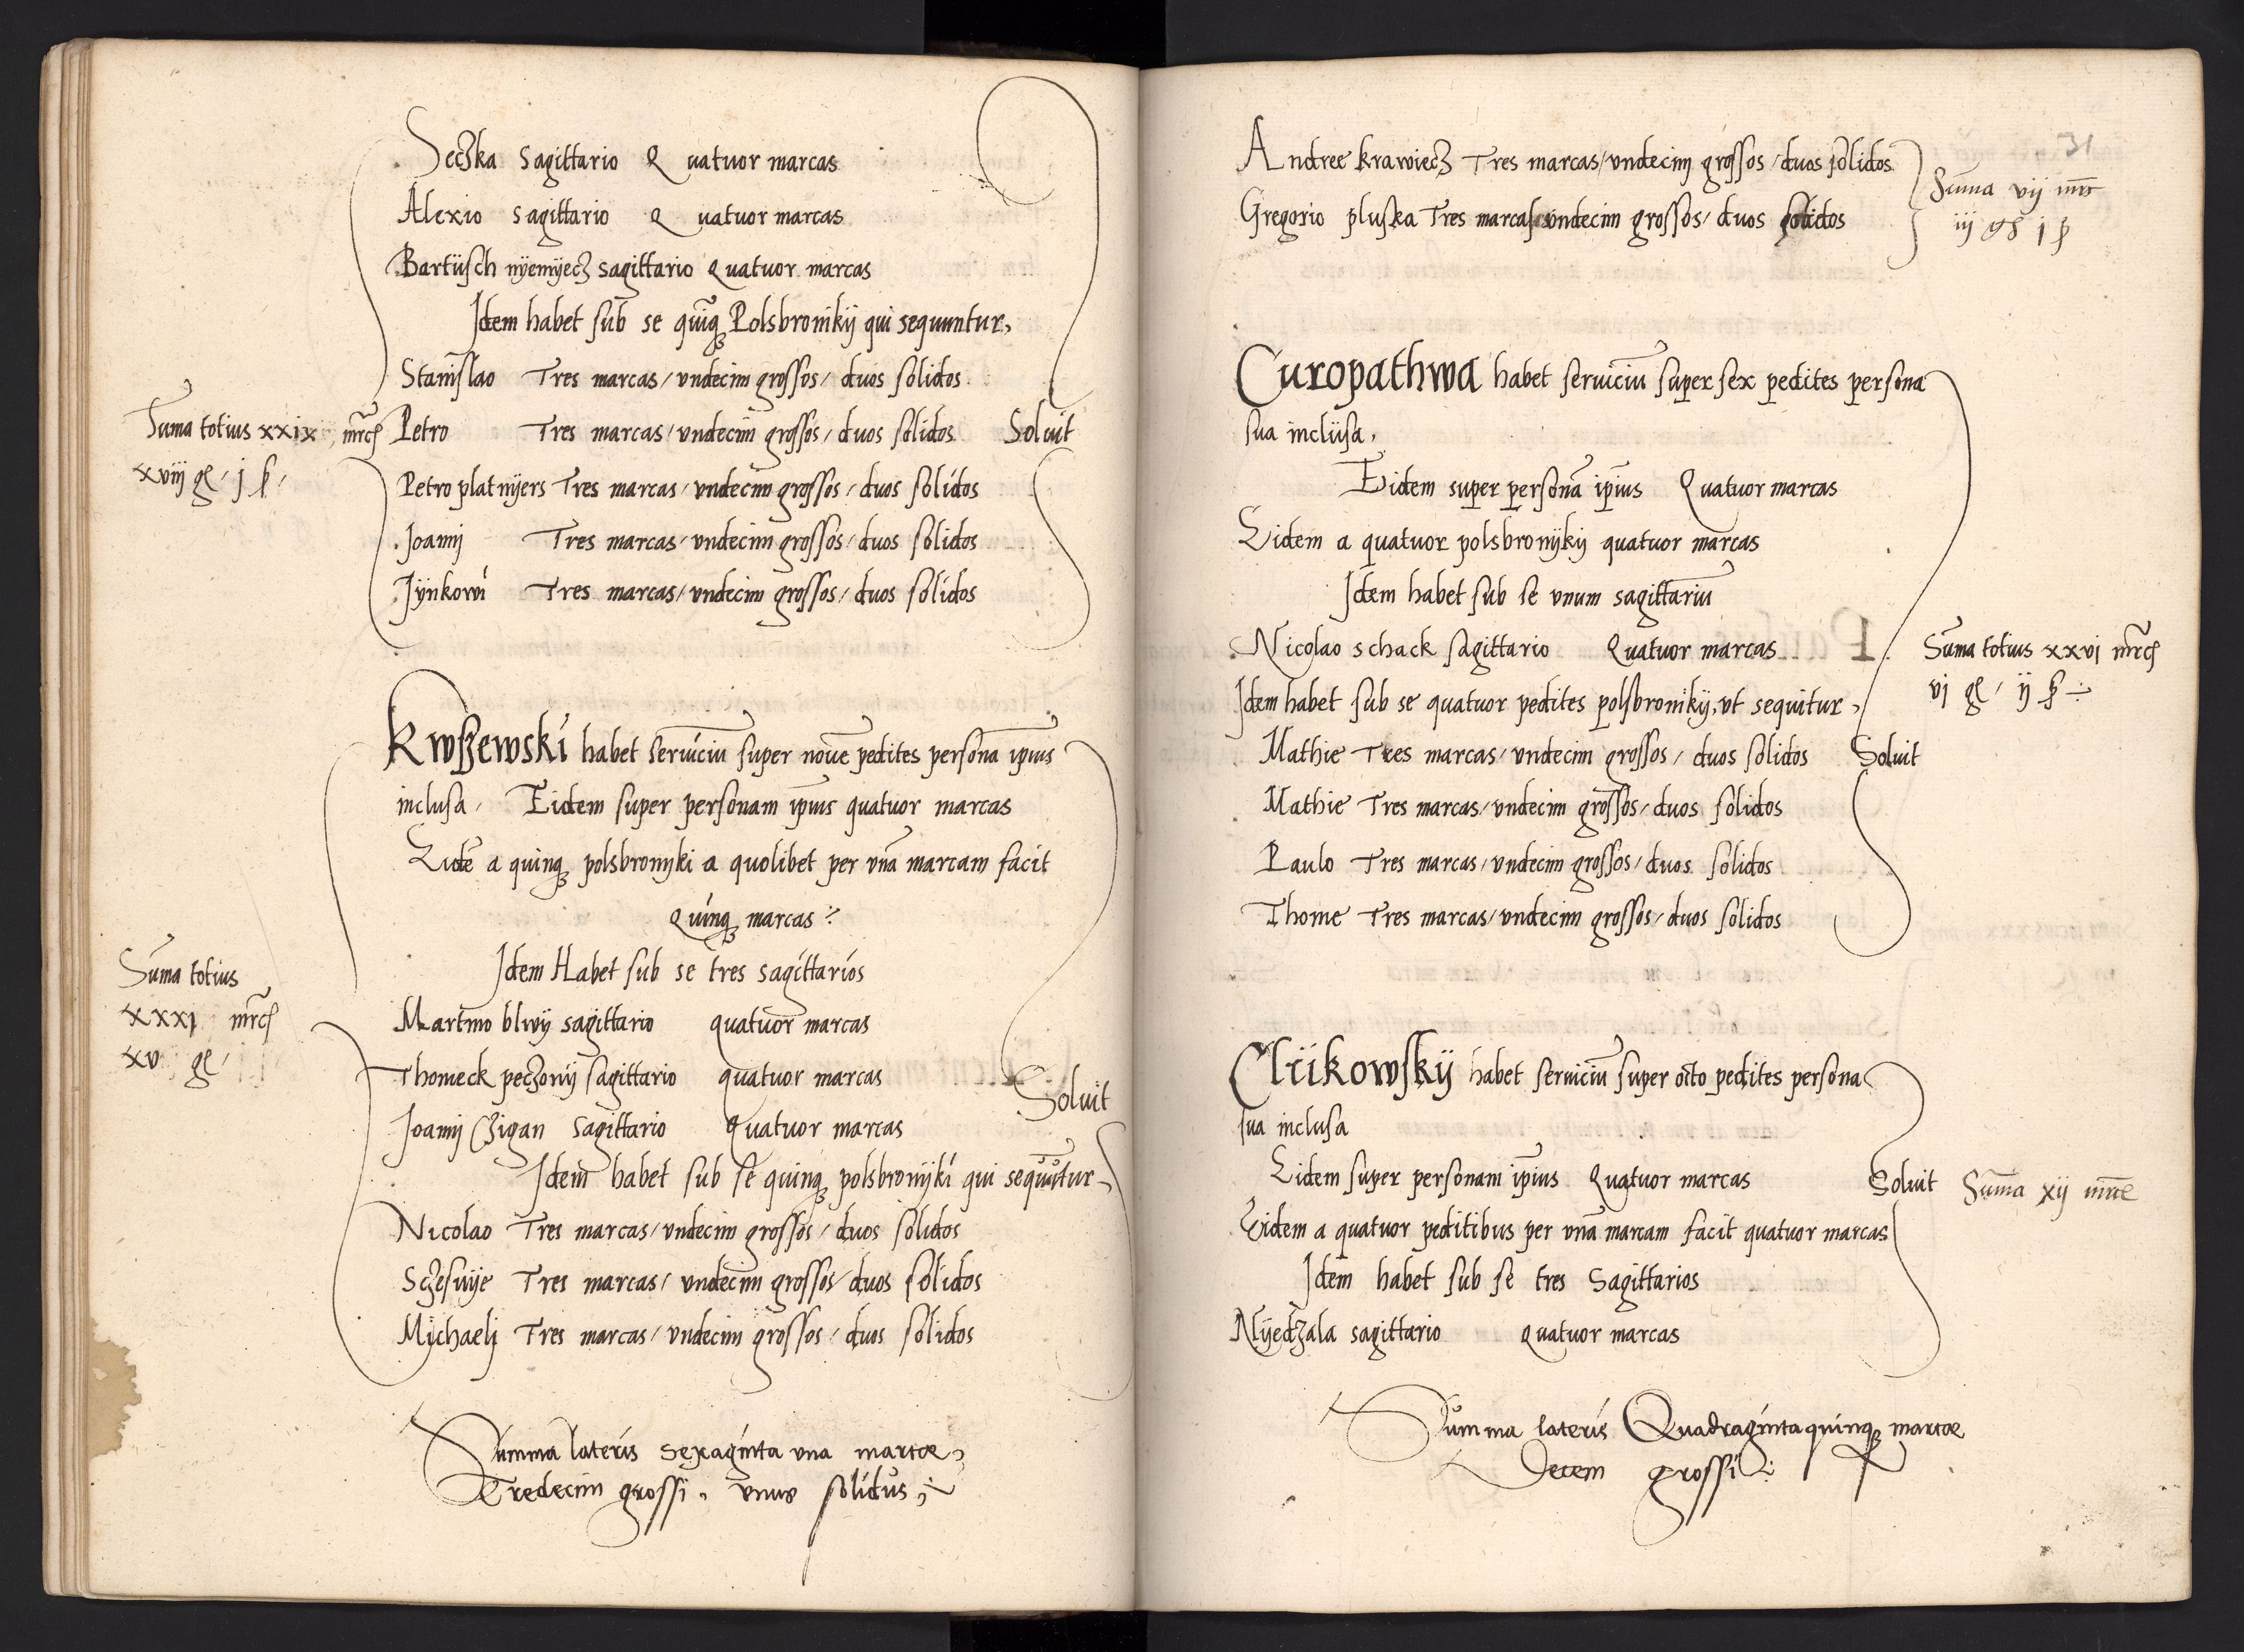 Seczka Sagittario Quatuor marcas
Alexio Sagittario Quatuor marcas
Bartüsch nÿemÿecz sagittario Quatuor marcas
Idem habet sub se quīq Polsbronikÿ qui sequuntur,
Stanīslao Tres marcas / vndecim grossos / duos solidos
Petro Tres marcas / vndecim grossos / duos solidos Soluit
Suma totius xxix mrc
xviij g / j ß /
Petro platnÿers Tres marcas / vndecim grossos / duos solidos
Joanni Tres marcas / vndecim grossos / duos solidos
Jÿnkowi Tres marcas / vndecim grossos / duos solidos
Kwßewski habet seruiciū super nouē pedites persona ipīus
inclusa / Eidem super personam ipīus quatuor marcas
Eidē a quinq polsbronyki a quolibet per vnā marcam facit
Quinq marcas
Idem Habet sub se tres sagittarios
Suma totius
xxxj mrc
xv g /
Martino blwÿ sagittario quatuor marcas
Thomeck peczonÿ sagittario quatuor marcas
Soluit
Joanni Czigan Sagittario Quatuor marcas
Idem habet sub se quinq polsbronÿki qui sequūtur
Nicolao Tres marcas / vndecim grossos / duos solidos
Sczesnÿe Tres marcas / vndecim grossos / duos solidos
Michaelj Tres marcas / vndecim grossos / duos solidos
Summa lateris sexaginta vna marcae,
Tredecim grossi, vnus solidus
31
Andree krawiecz Tres marcas / vndecim grossos / duos solidos
Gregorio pluska Tres marcas vndecim grossos / duos solidos
Suma vij mrc
iij gs j ß
Curopathwa habet seruiciū super sex pedites persona
sua inclüsa,
Eidem super personā ipīus Quatuor marcas
Eidem a quatuor polsbronÿkÿ quatuor marcas
Idem habet sub se vnum sagittariū
Nicolao schack sagittario Quatuor marcas
Suma totius xxvj mrc
vj g / ij ß
Idem habet sub se quatuor pedites polsbronikÿ, vt sequitur,
Mathie Tres marcas / vndecim grossos / duos solidos Soluit
Mathie Tres marcas / vndecim grossos / duos solidos
Paulo Tres marcas / vndecim grossos / duos solidos
Thome Tres marcas / vndecim grossos / duos solidos
Clükowskÿ habet seruiciū super octo pedites persona
sua inclusa
Eidem super personam ipīus Quatuor marcas Soluit
Suma xij mrce
Eidem a quatuor peditibus per vnā marcam facit quatuor marcas
Idem habet sub se tres Sagittarios
Nÿedzala sagittario Quatuor marcas
Summa lateris Quadraginta quinq marcae
Decem grossi